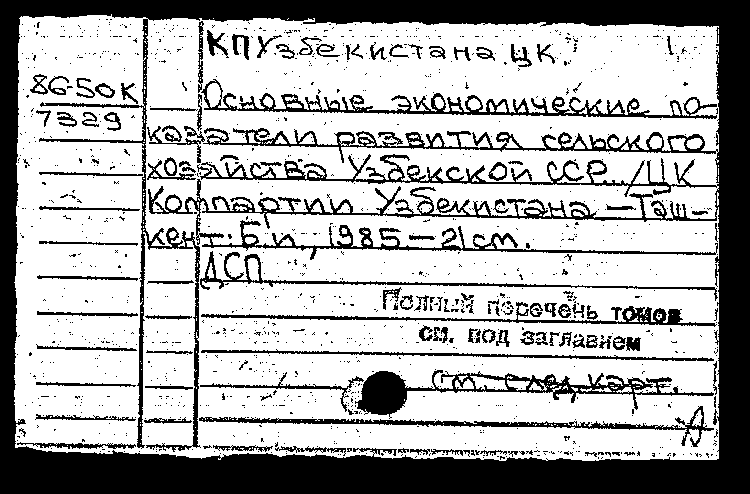 КП Узбекистана ЦК. 1.
86-50К
7329
Основные экономические по-
казатели развития сельского
хозяйства Узбекской ССР... /ЦК
Компартии Узбекистана – Таш-
кент: Б.и., 1985 – 21 см.
ДСП.
Полный перечень томов
см. под заглавием
См. след. карт.